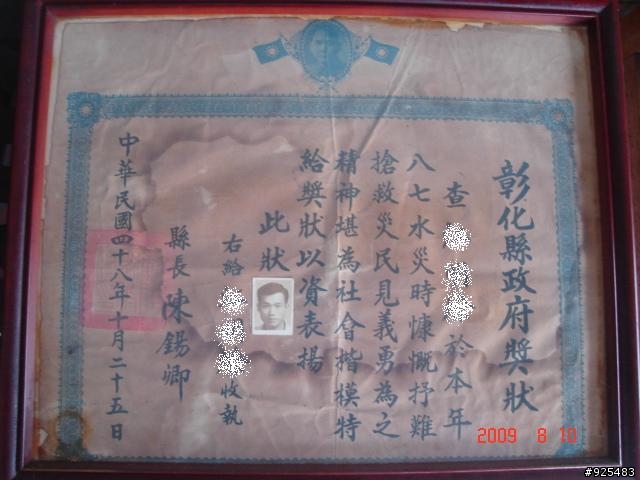 彰化縣政府獎狀
查 於本年
八七水災時慷慨抒難
搶救災民見義勇為之
精神堪為社會楷模特
給獎狀以資表揚
此狀
右給 收執
縣長陳錫卿
中華民國四十八年十月二十五日
2009 8 10
#925483